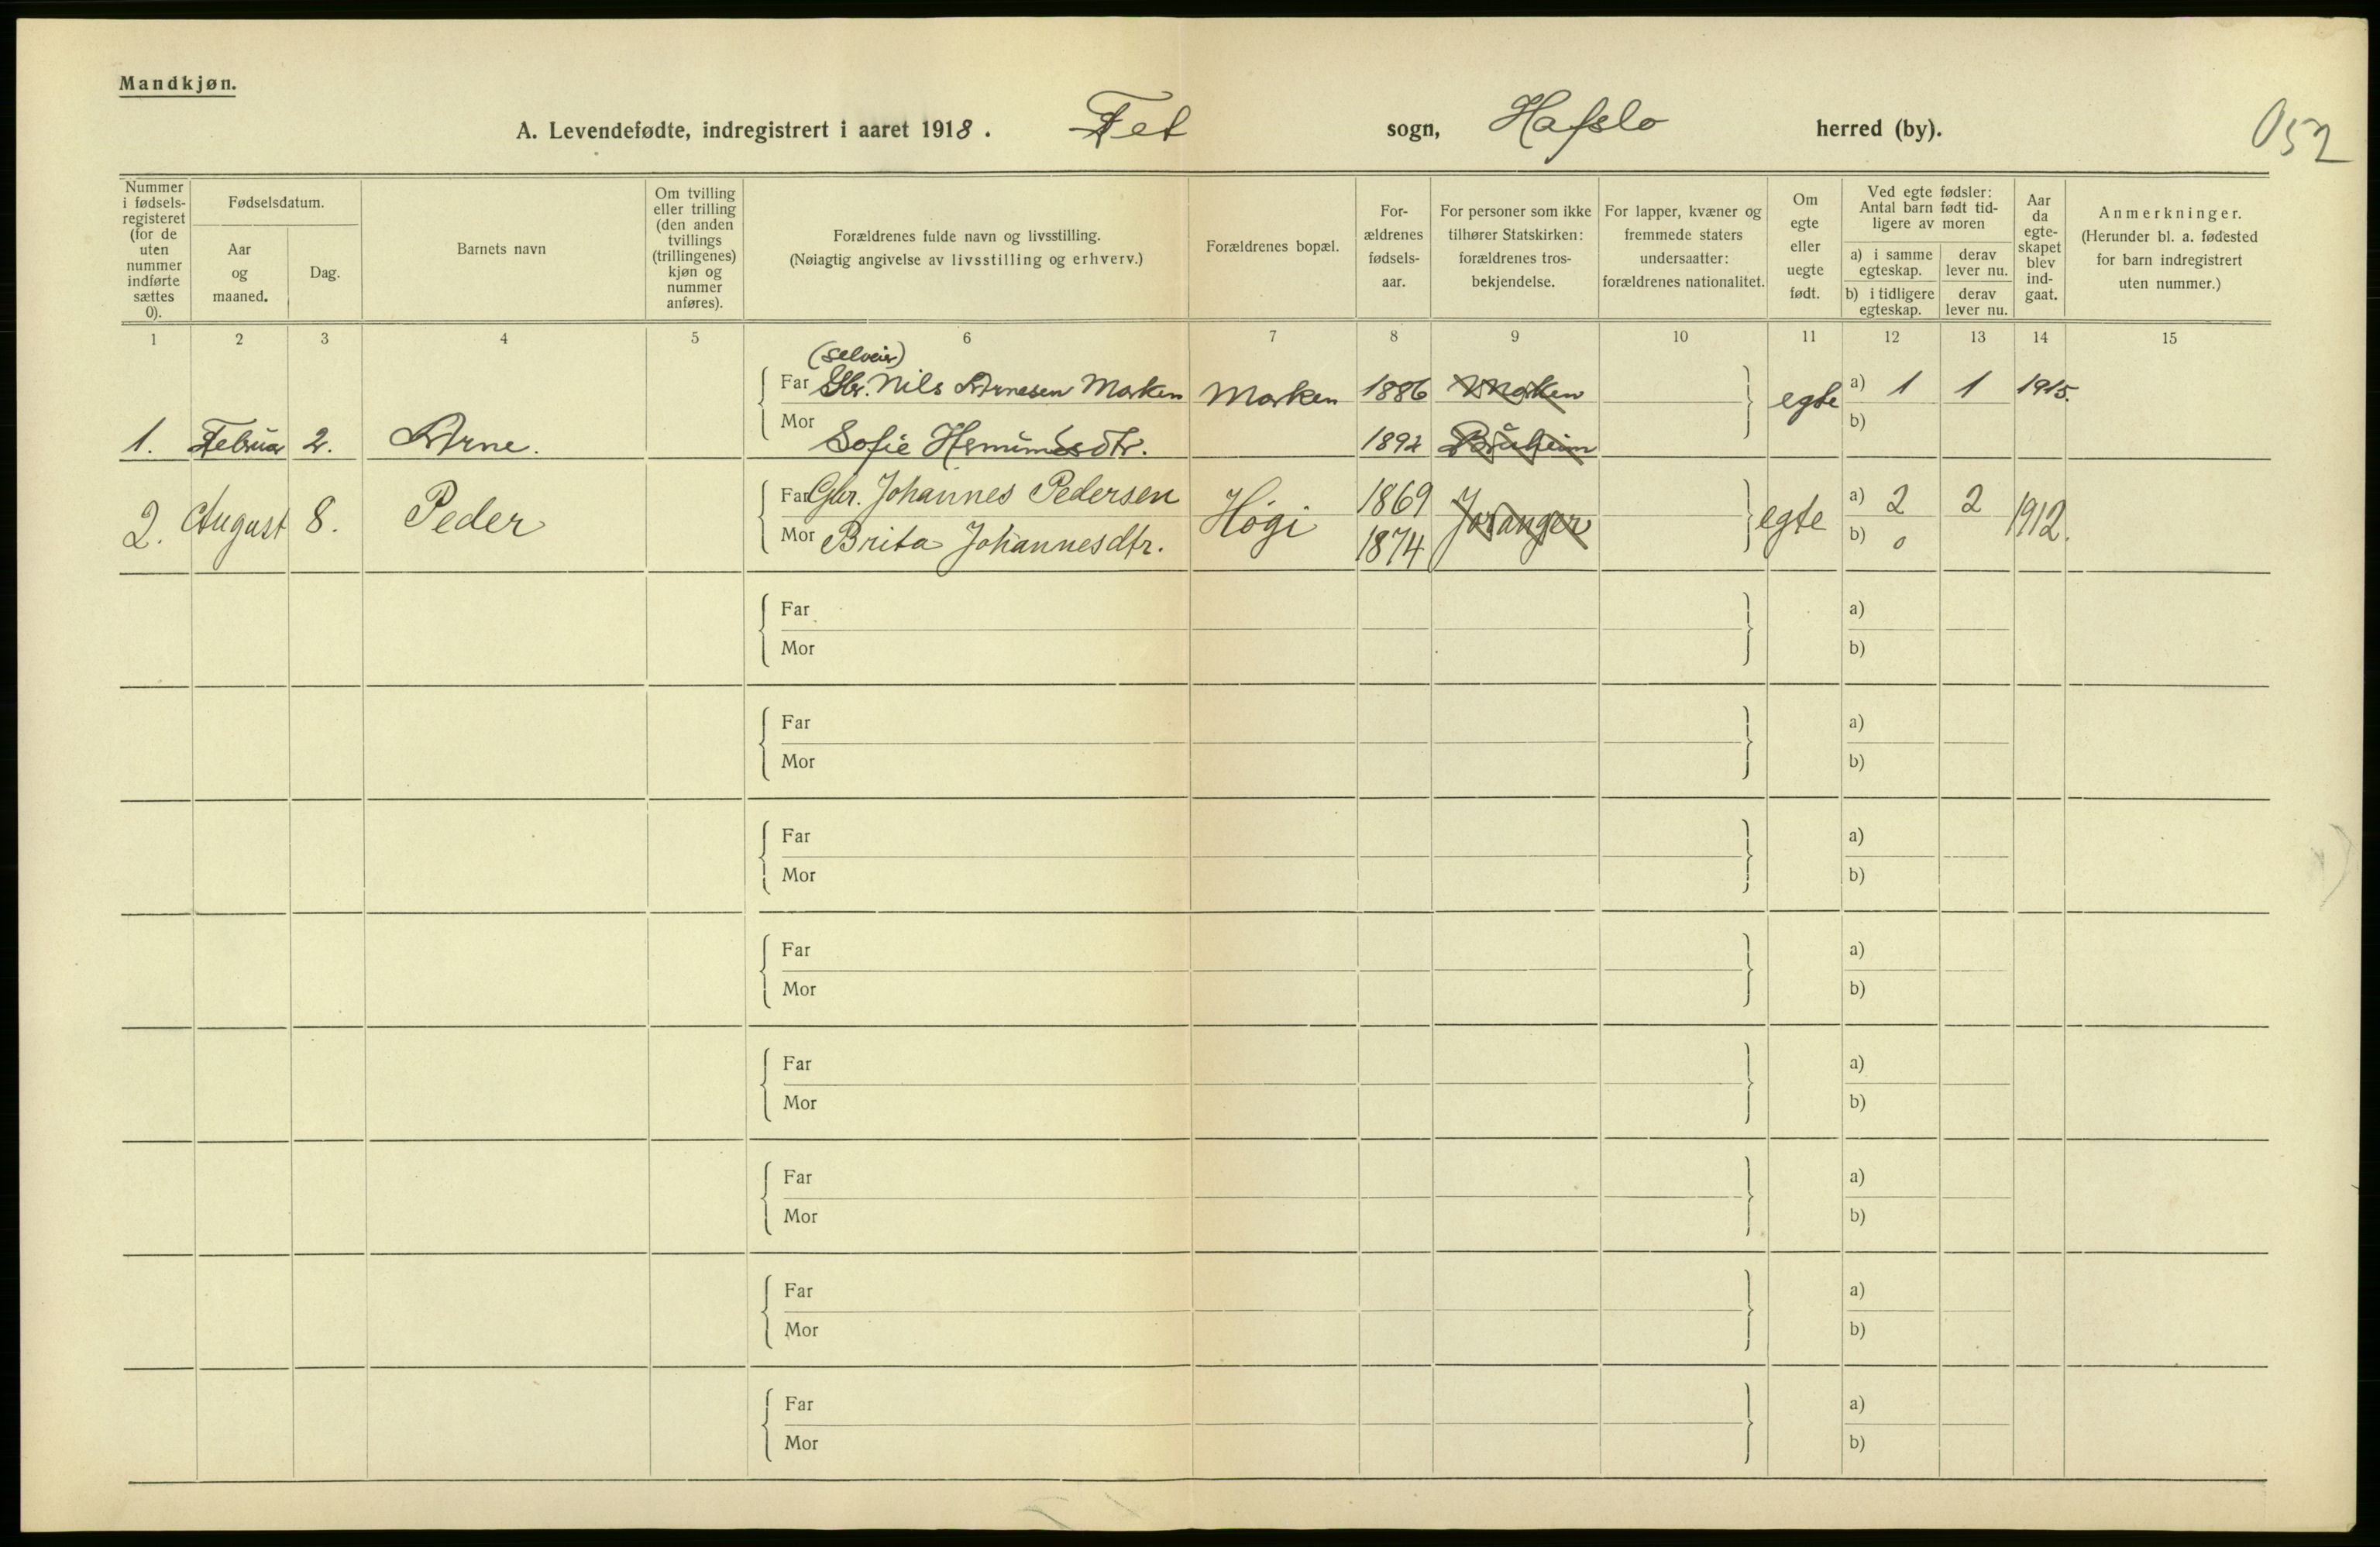 Mandkjøn.
A. Levendefødte, indregistrert i aaret 1918. Fet sogn, Hafslo herred (by).
052
Nummer i fødsels-registeret (for de uten nummer indførte sættes 0).
Fødselsdatum.
Aar og maaned.
Dag.
Barnets navn
Om tvilling eller trilling (den anden tvillings (trillingenes) kjøn og nummer anføres).
Forældrenes fulde navn og livsstilling.
(Nøiagtig angivelse av livsstilling og erhverv.)
Forældrenes bopæl.
For-ældrenes fødsels-aar.
For personer som ikke tilhører Statskirken: forældrenes tros-bekjendelse.
For lapper, kvæner og fremmede staters undersaatter: forældrenes nationalitet.
Om egte eller uegte født.
Ved egte fødsler: Antal barn født tid-ligere av moren
a) i samme egteskap. derav lever nu.
b) i tidligere egteskap. derav lever nu.
Aar da egte-skapet blev ind-gaat.
Anmerkninger.
(Herunder bl. a. fødested for barn indregistrert uten nummer.)
1 2 3 4 5 6 7 8 9 10 11 12 13 14 15
(selveier)
Far Gbr. Nils Arnesen Marken Marken 1886 Marken egte a) 1 1 1915.
1. Februar 2. Arne. Mor Sofie dtr. 1892 Bruheim b)
Far Gbr. Johannes Pedersen Høgi 1869 Joranger egte a) 2 2 1912.
2. August 8. Peder Mor Brita Johannesdtr. 1874 b) 0
Far a)
Mor b)
Far a)
Mor b)
Far a)
Mor b)
Far a)
Mor b)
Far a)
Mor b)
Far a)
Mor b)
Far a)
Mor b)
Far a)
Mor b)